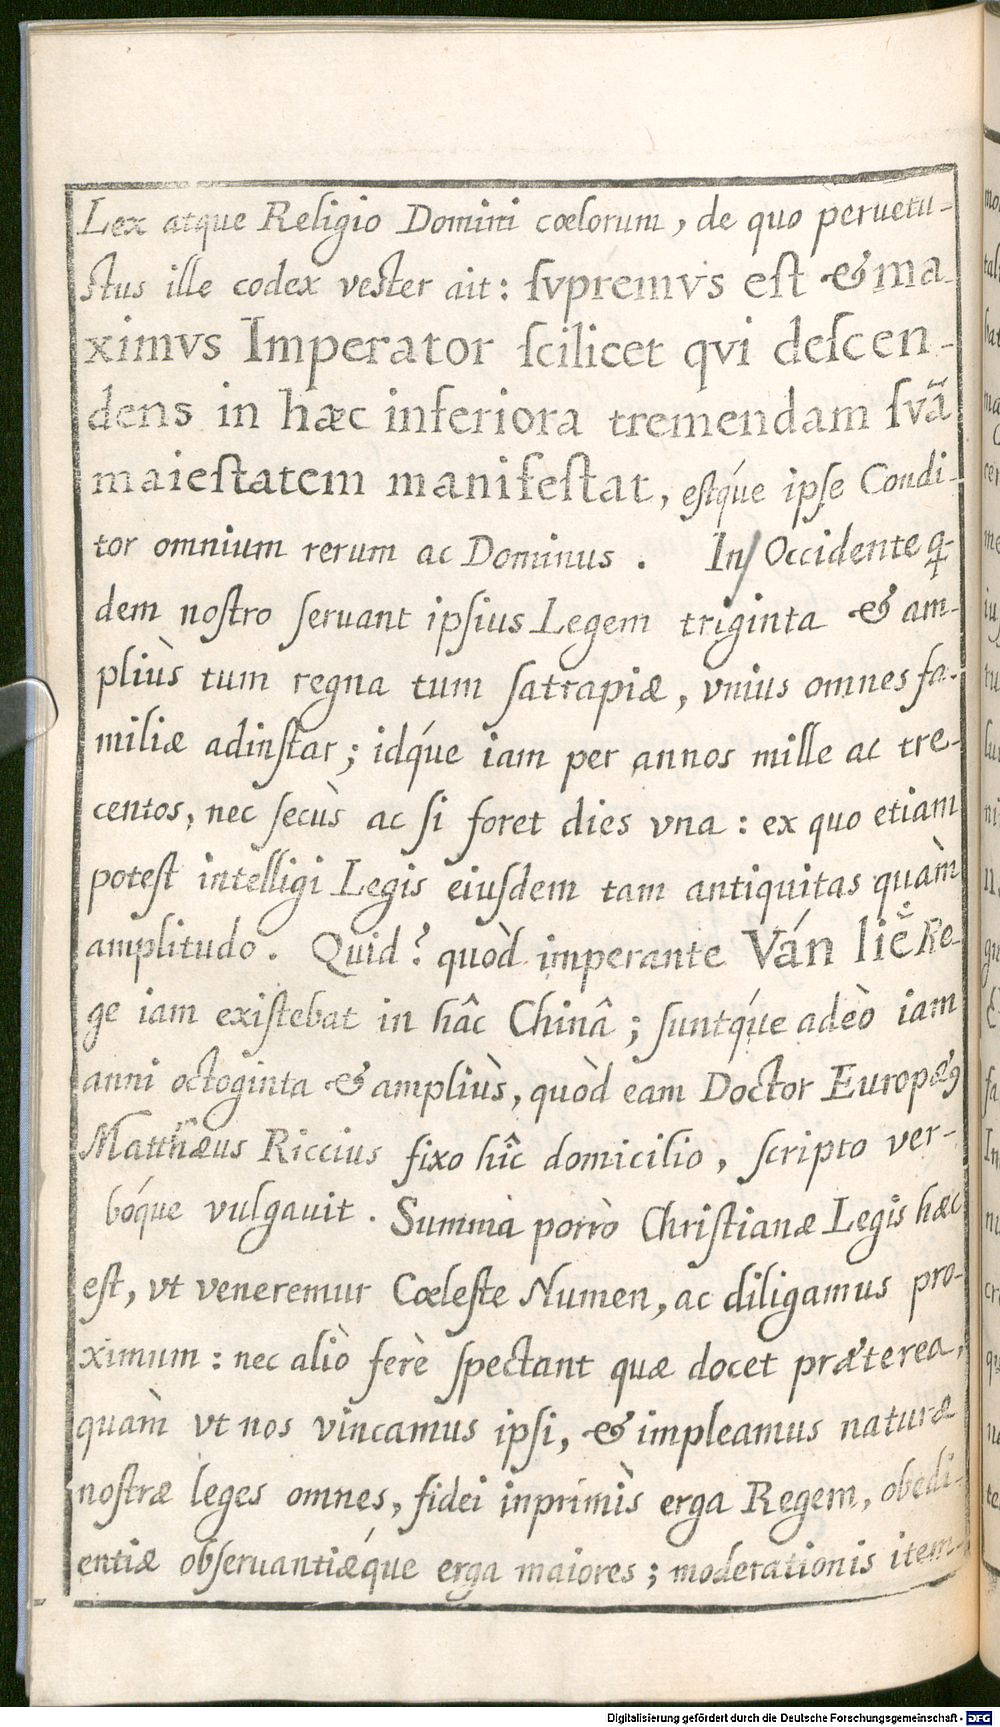 Lex atque Religio Domini cœlorum, de quo peruetu-
stus ille codex vester ait: ſvpremvs eſt & ma-
ximvs Imperator ſcilicet qvi deſcen-
dens in hæc inferiora tremendam ſvã
maieſtatem manifeſtat, eſtq́ue ipſe Condi-
tor omnium rerum ac Dominus. In/Occidente q-
dem noſtro ſeruant ipſius Legem triginta & am-
pliùs tum regna tum ſatrapiæ, vnius omnes fa-
miliæ adinſtar; idq́ue iam per annos mille ac tre-
centos, nec ſecùs ac ſi foret dies vna: ex quo etiam
poteſt intelligi Legis eiuſdem tam antiquitas quàm
amplitudo. Quid? quòd imperante Ván liĕ Re-
ge iam exiſtebat in hâc Chinâ; ſuntq́ue adeò iam
anni octoginta & ampliùs, quòd eam Doctor Europæꝰ
Matthæus Riccius fixo hîc domicilio, ſcripto ver-
bóque vulgauit. Summa porrò Chriſtianæ Legis hæc
eſt, vt veneremur Cœleſte Numen, ac diligamus pro-
ximum: nec aliò ferè ſpectant quæ docet præterea,
quàm vt nos vincamus ipſi, & impleamus naturæ
noſtræ leges omnes, fidei inprimìs erga Regem, obedi-
entiæ obſeruantiæq́ue erga maiores; moderationis item
Digitalisierung gefördert durch die Deutsche Forschungsgemeinschaft - DFG